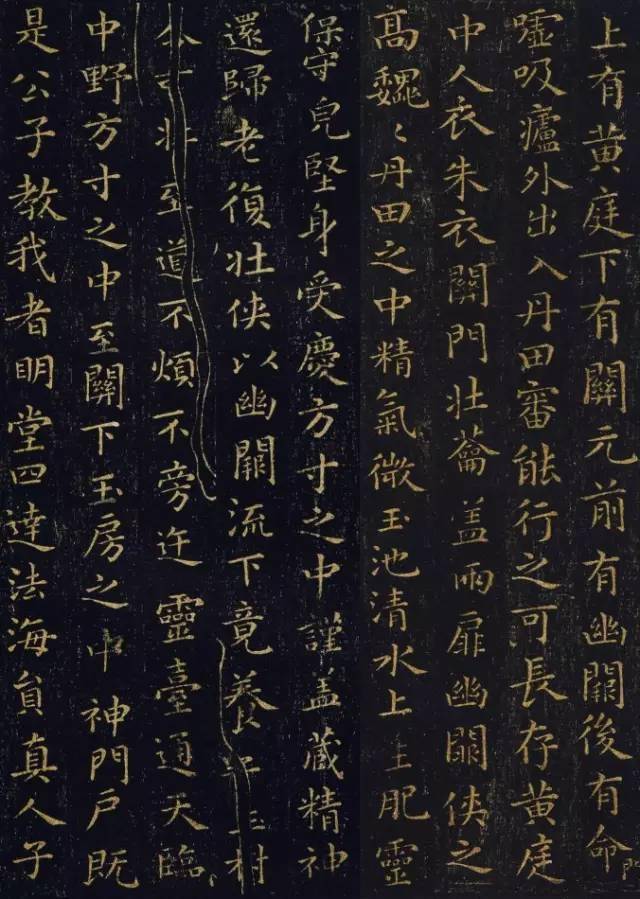 上有黄庭下有關元前有幽闕後有命門
嘘吸廬外出入丹田審能行之可長存黄庭
中人衣朱衣關門壮蘥盖兩扉幽闕侠之
髙巍〻丹田之中精氣微玉池清水上生肥靈
保守皃堅身受慶方寸之中謹盖藏精神
還歸老復壮侠以幽闕流下竟養子玉樹
至道不煩不旁迕靈臺通天臨
中野方寸之中至關下玉房之中神門戶既
是公子教我者明堂四達法海員真人子